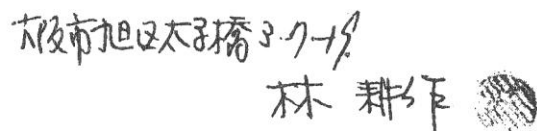 大阪市旭区太子橋3-7-19
林 耕作